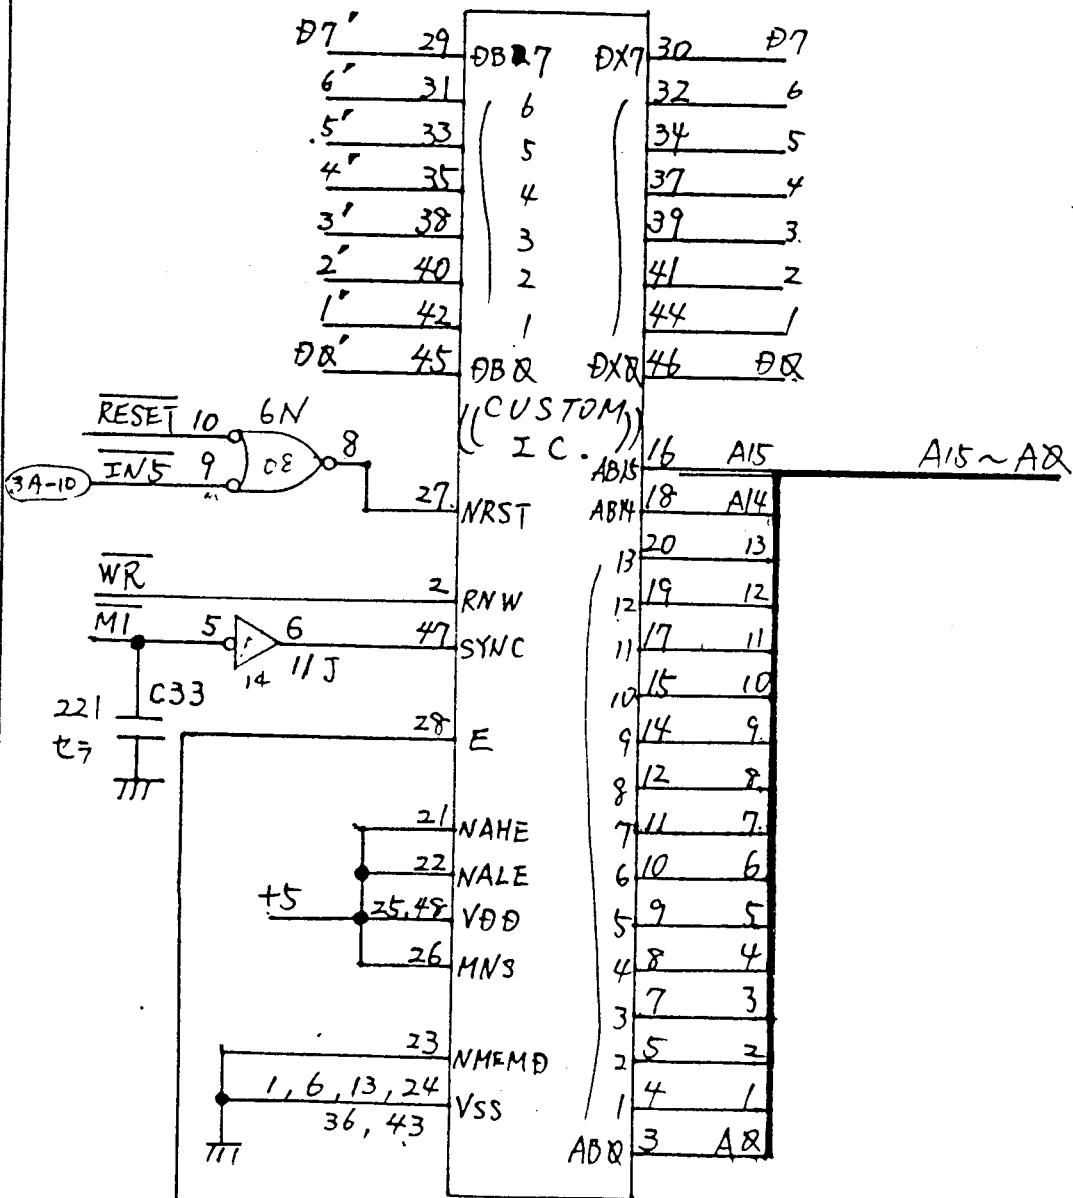 D7' 29 DB7 DX7 30 D7
6' 31 6 32 6
5' 33 5 34 5
4' 35 4 37 4
3' 38 3 39 3
2' 40 2 41 2
1' 42 1 44 1
D0' 45 DB0 DX0 46 D0
((CUSTOM IC.))
RESET 10 6N 8
3A-10 IN5 9
27 NRST
WR 2 RNW
M1 5 6 47 SYNC
14 11J
221 C33
セラ
28 E
21 NAHE
22 NALE
+5 25,48 VDD
26 MNS
23 NMEMD
1, 6, 13, 24 VSS
36, 43
AB15 16 A15 A15~A0
AB14 18 A14
13 20 13
12 19 12
11 17 11
10 15 10
9 14 9
8 12 8
7 11 7
6 10 6
5 9 5
4 8 4
3 7 3
2 5 2
1 4 1
AB0 3 A0